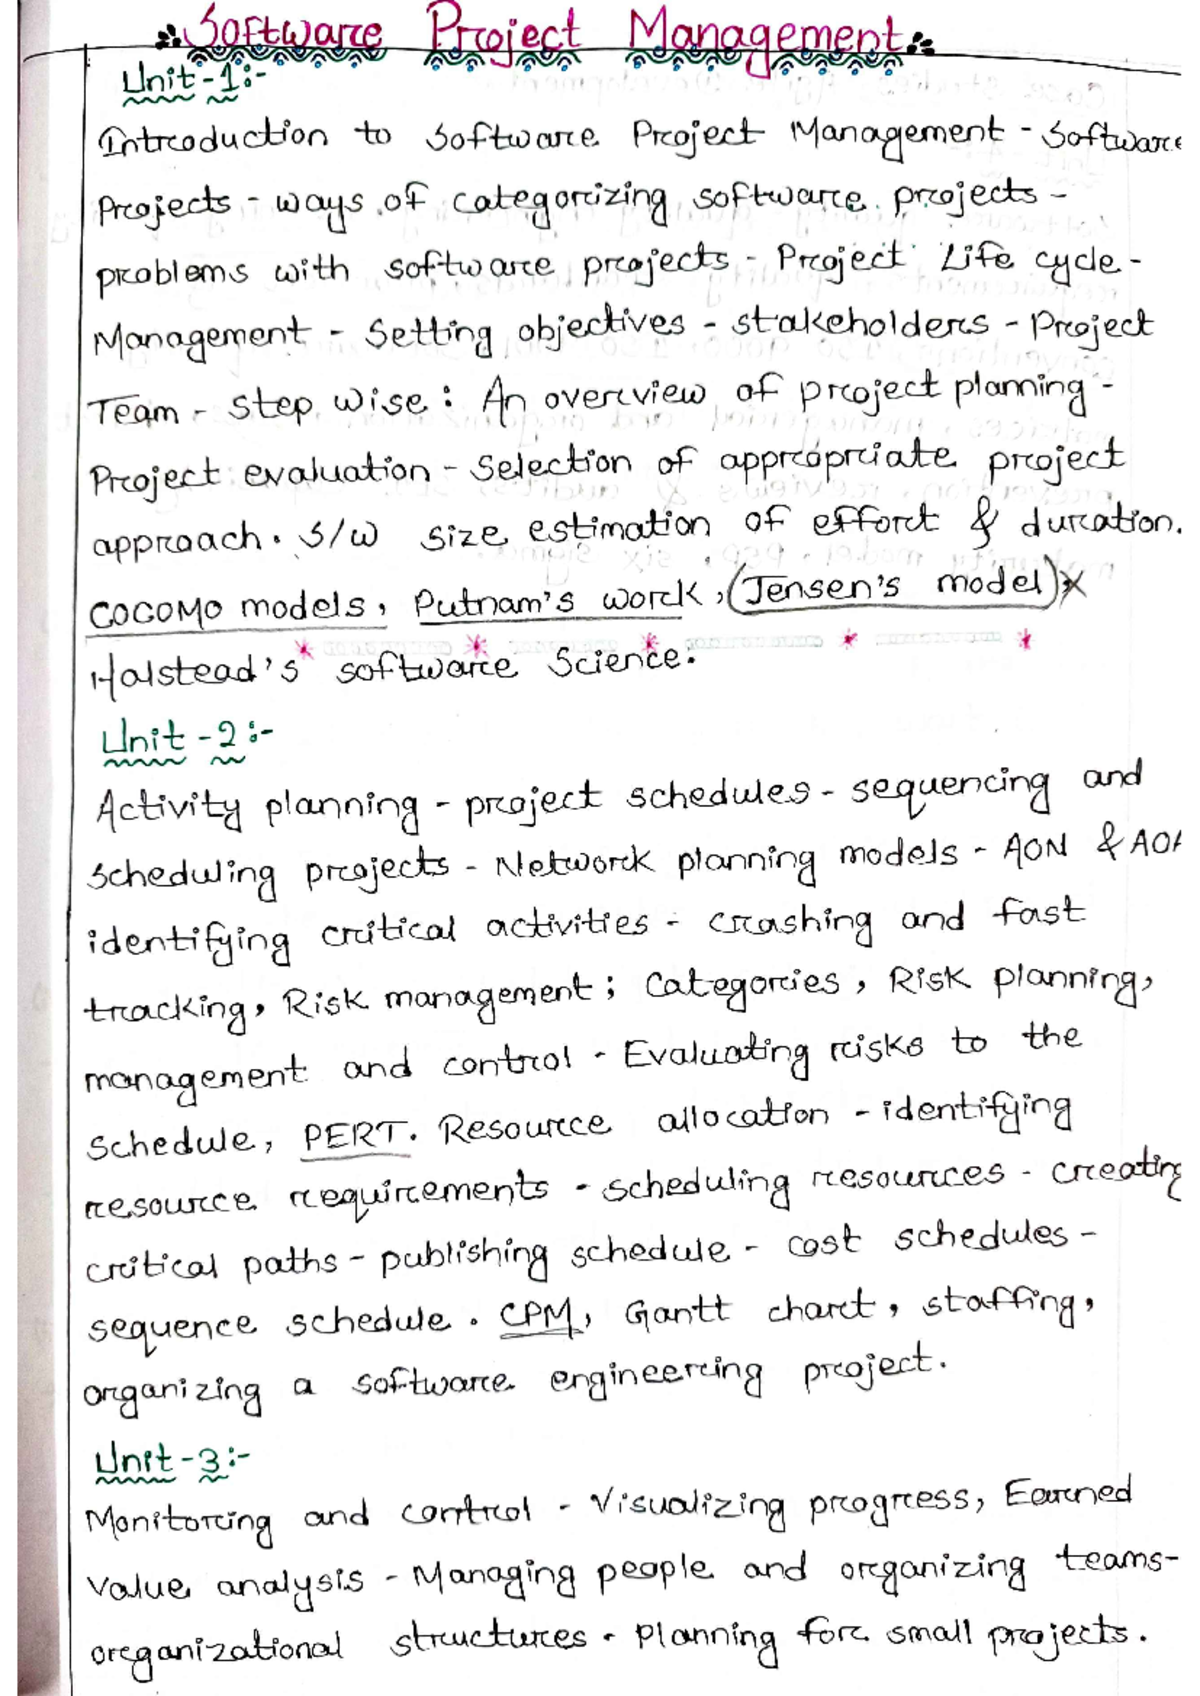 Software Project Management
Unit-1:-
Introduction to Software Project Management - Software
Projects - ways of categorizing software projects -
problems with software projects - Project Life cycle -
Management - Setting objectives - stakeholders - Project
Team - step wise: An overview of project planning -
Project evaluation - Selection of appropriate project
approach. S/W size estimation of effort & duration.
COCOMO models, Putnam's work, (Jensen's model)x
Halstead's software Science.
Unit-2:-
Activity planning - project schedules - sequencing and
scheduling projects - Network planning models - AON & AOA
identifying critical activities - crashing and fast
tracking, Risk management; Categories, Risk planning,
management and control - Evaluating risks to the
schedule, PERT. Resource allocation - identifying
resource requirements - scheduling resources - creating
critical paths - publishing schedule - cost schedules -
sequence schedule. CPM, Gantt chart, staffing,
organizing a software engineering project.
Unit-3:-
Monitoring and control - Visualizing progress, Earned
value analysis - Managing people and organizing teams-
organizational structures. Planning for small projects.